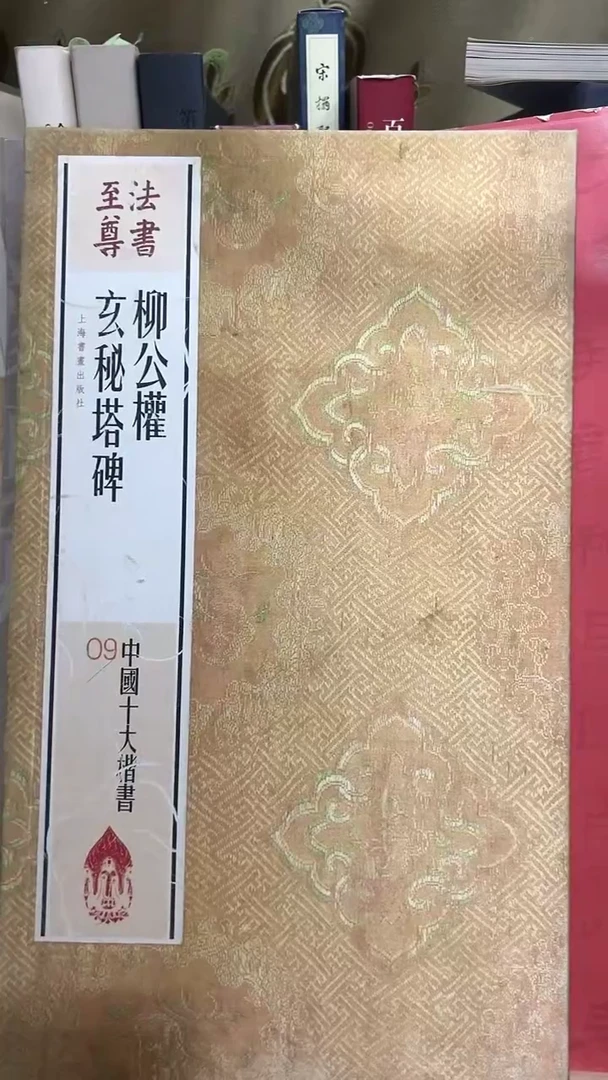 法書
至尊
柳公權
玄秘塔碑
上海書畫出版社
中國十大楷書
09
宋搨
百